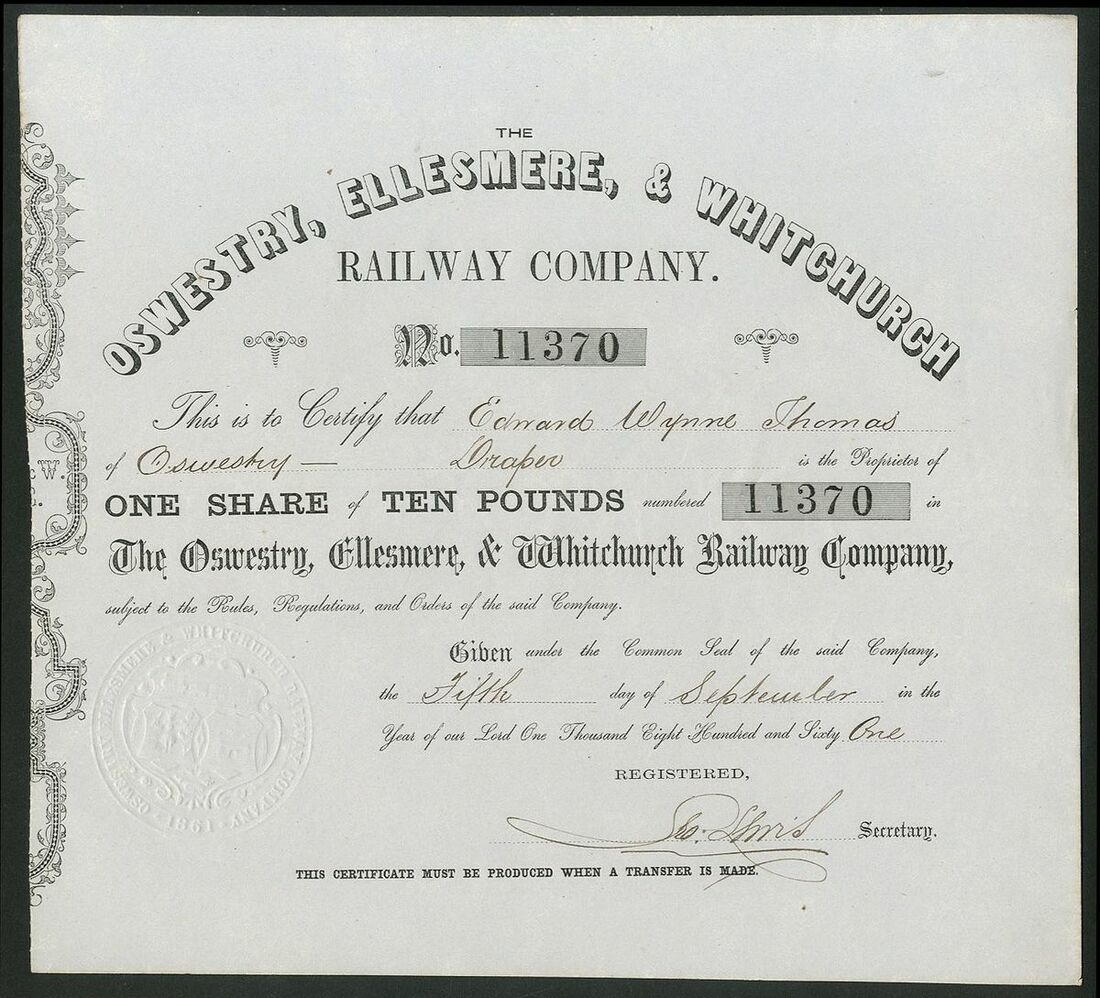 THE
OSWESTRY, ELLESMERE, & WHITCHURCH
RAILWAY COMPANY.
No. 11370
This is to Certify that Edward Wynne Thomas
of Oswestry — Draper is the Proprietor of
ONE SHARE of TEN POUNDS numbered 11370 in
The Oswestry, Ellesmere, & Whitchurch Railway Company,
subject to the Rules, Regulations, and Orders of the said Company.
Given under the Common Seal of the said Company,
the Fifth day of September in the
Year of our Lord One Thousand Eight Hundred and Sixty One
REGISTERED,
Secretary.
THIS CERTIFICATE MUST BE PRODUCED WHEN A TRANSFER IS MADE.
W.
OSWESTRY ELLESMERE & WHITCHURCH RAILWAY COMPANY
1861